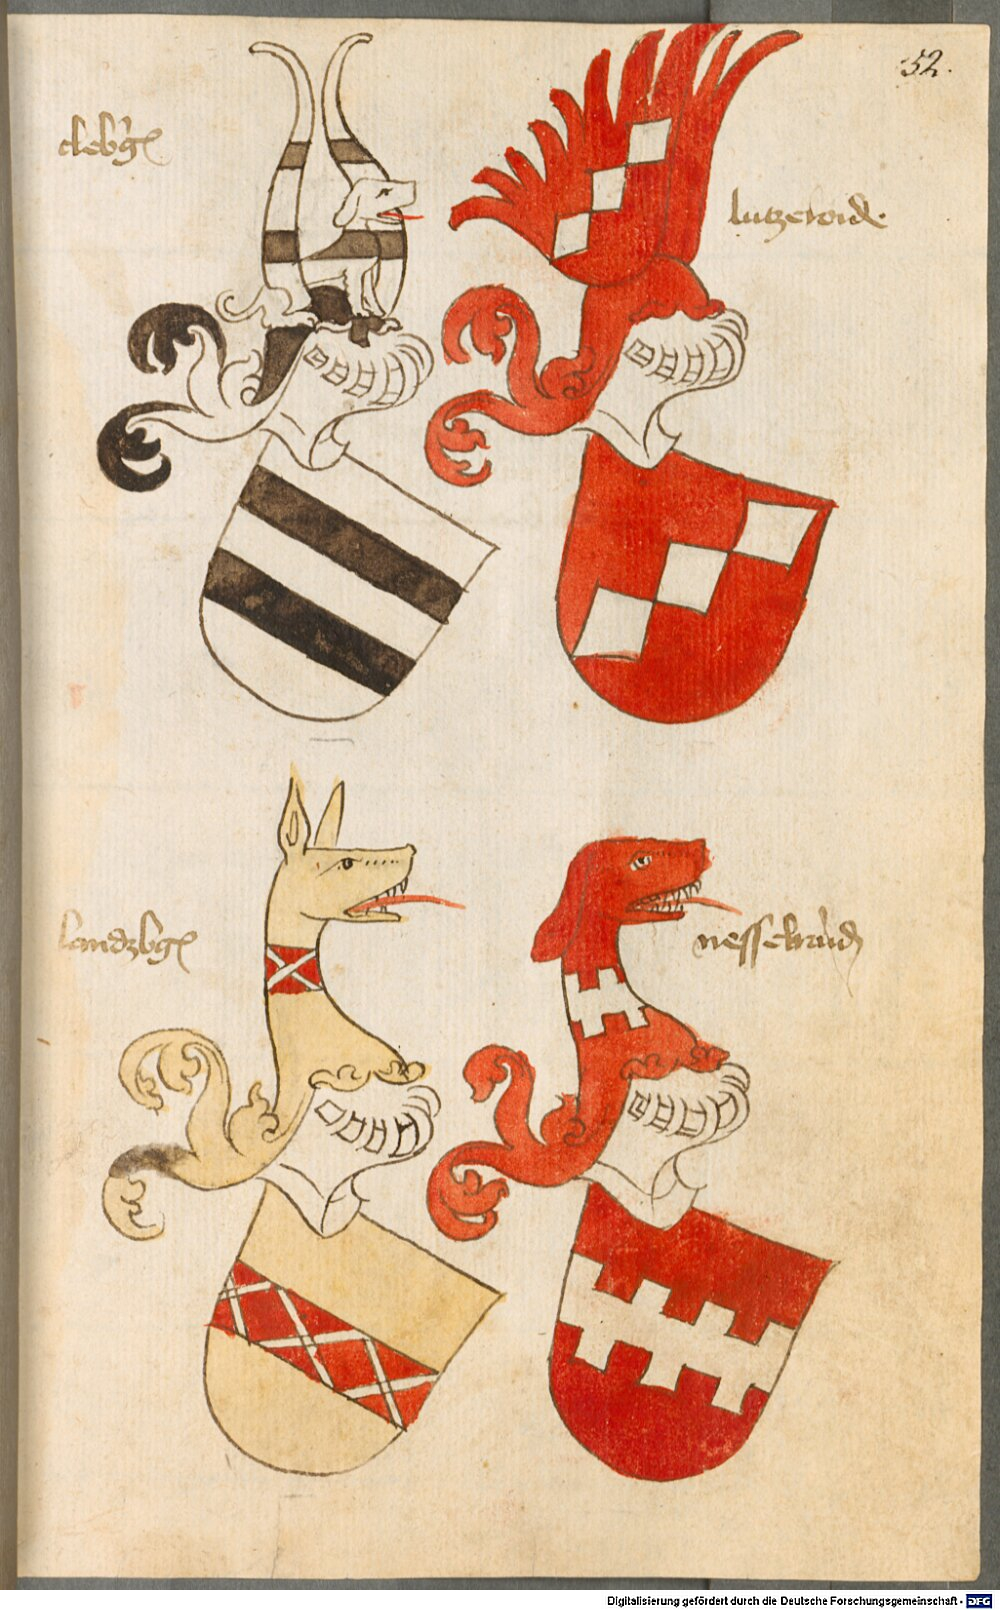 52.
clebg
lutzeroid.
landzbg
nesselraid
Digitalisierung gefördert durch die Deutsche Forschungsgemeinschaft - DFG